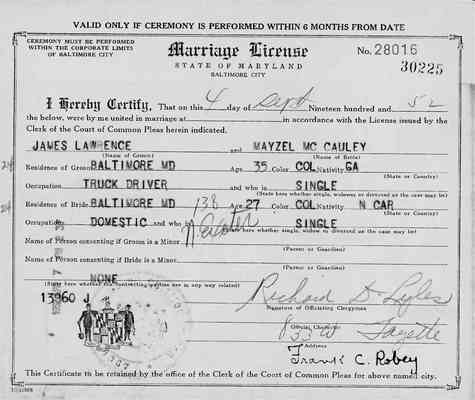 VALID ONLY IF CEREMONY IS PERFORMED WITHIN 6 MONTHS FROM DATE
CEREMONY MUST BE PERFORMED
WITHIN THE CORPORATE LIMITS
OF BALTIMORE CITY
Marriage License
STATE OF MARYLAND
BALTIMORE CITY
No. 28016
30225
I Hereby Certify, That on this 4 day of Sept Nineteen hundred and 52
the below, were by me united in marriage at in accordance with the License issued by the
Clerk of the Court of Common Pleas herein indicated.
JAMES LAWRENCE and MAYZEL MC CAULEY
(Name of Groom) (Name of Bride)
Residence of Groom BALTIMORE MD Age 35 Color COL Nativity GA
(State or Country)
Occupation TRUCK DRIVER and who is SINGLE
(State here whether single, widower or divorced as the case may be)
Residence of Bride BALTIMORE MD 138 Age 27 Color COL Nativity N CAR
(State or Country)
Occupation DOMESTIC and who SINGLE
(State here whether single, widow or divorced as the case may be)
Name of Person consenting if Groom is a Minor
(Parent or Guardian)
Name of Person consenting if Bride is a Minor
(Parent or Guardian)
NONE
(State here whether the contracting parties are in any way related)
13960 J
Richard D. Lyles
Signature of Officiating Clergyman
Official Character
833 W Fayette
Address
Frank C. Robey
This Certificate to be retained by the office of the Clerk of the Court of Common Pleas for above named city.